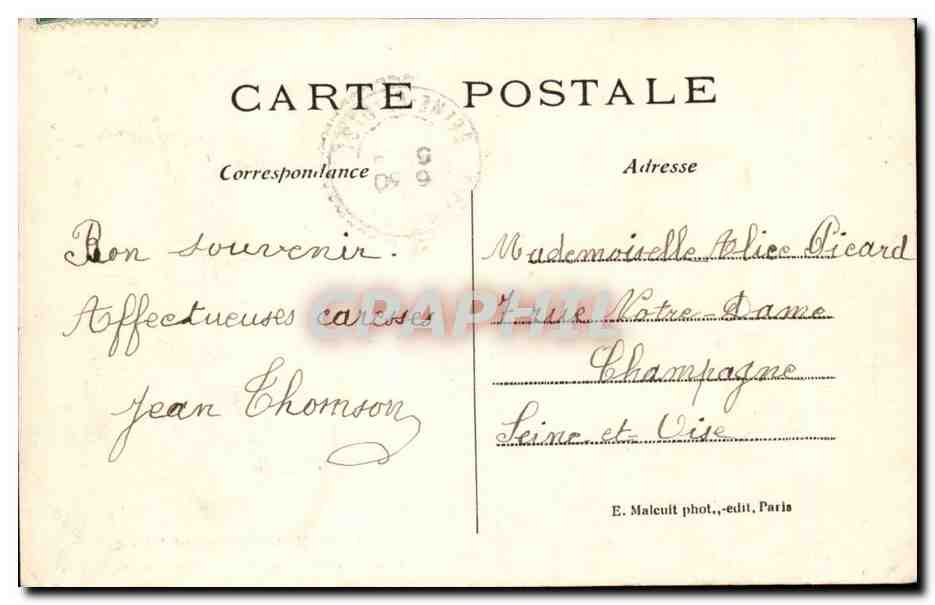 CARTE POSTALE
Correspondance
Adresse
Bon souvenir.
Affectueuses caresses
Jean Thomson
Mademoiselle Alice Picard
7 rue Notre-Dame
Champagne
Seine-et-Oise
E. Malcuit phot.,-edit, Paris
GRAPHIL